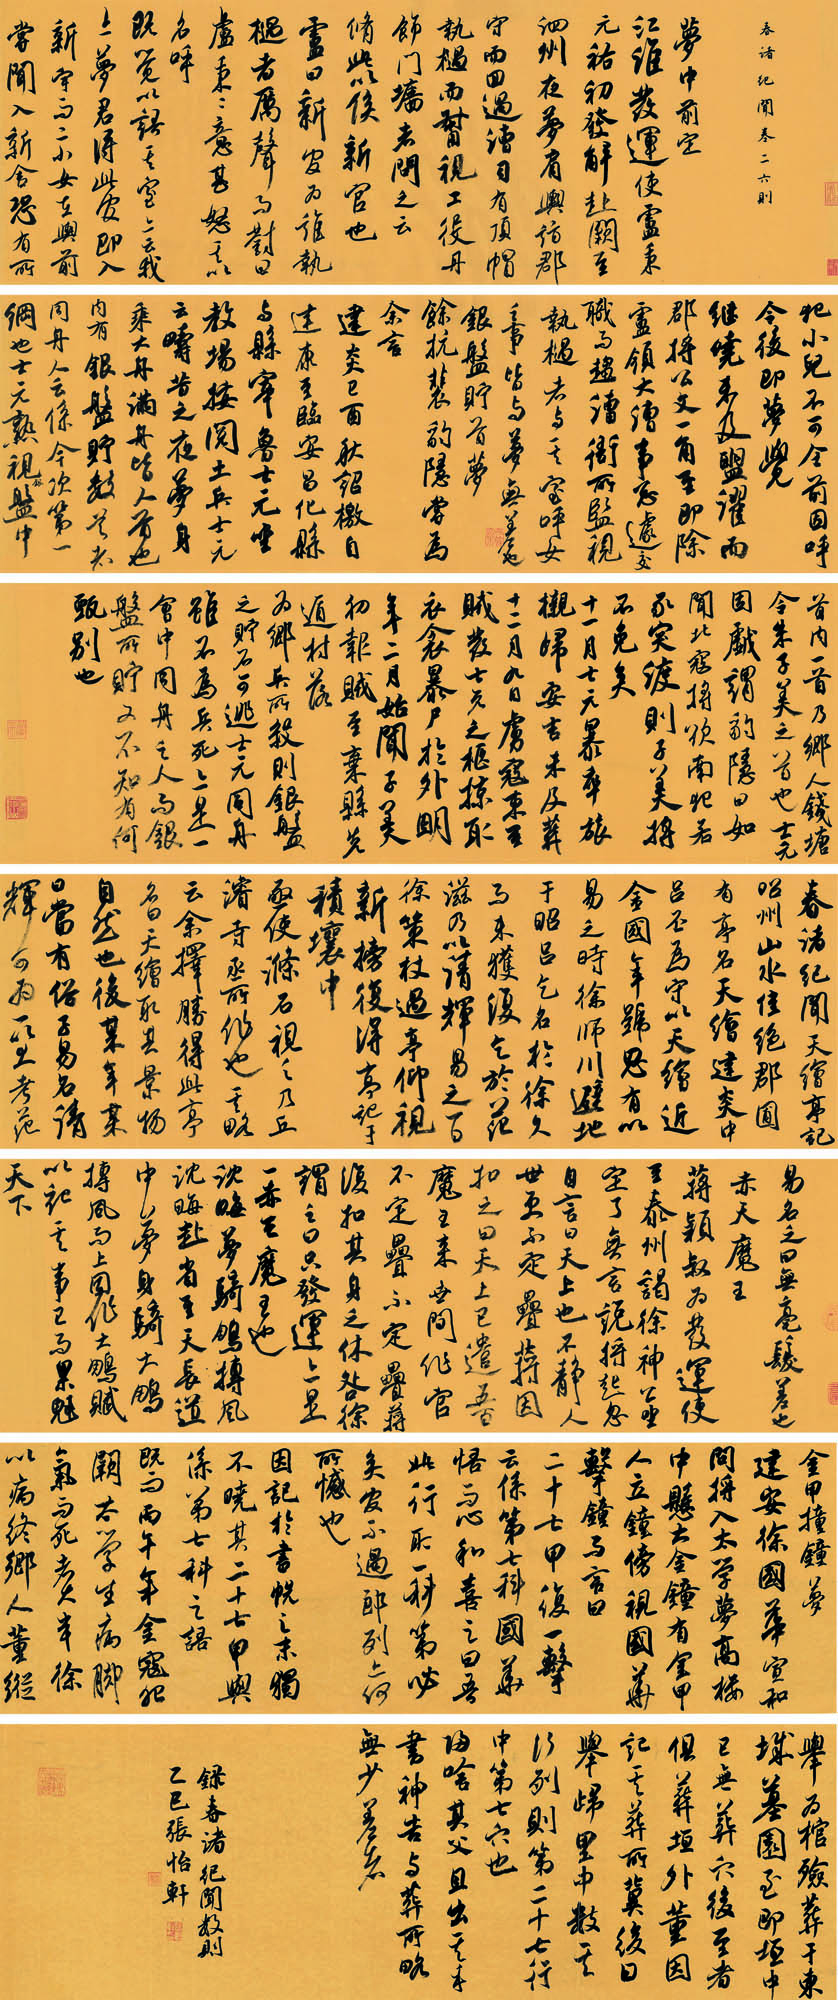 春渚紀聞卷二六則
夢中前定
江淮發運使盧秉
元祐初發解赴闕至
泗州夜夢肩輿詣郡
守而回過漕司有頂帽
執檛而督視工役丹
飾門墻者問之云
脩此以俟新官也
盧曰新官為誰執
檛者厲聲而對曰
盧秉秉意甚怒其以
名呼
既覺以語其室亦云我
亦夢君得此官即入
新宇而二小女在輿前
嘗聞入新舍恐有所
犯小兒不可令前因呼
令後即夢覺
繼曉未及盥濯而
郡將公文一角至即除
盧領大漕事忽遽交
職而趨漕衙所監視
執檛者與其室呼女
之事皆與夢無差也
銀盤貯首夢
餘杭裴豹隱嘗為
余言
建炎己酉秋詔檄自
建康至臨安昌化縣
與縣宰魯士元坐
教場按閱土兵士元
云疇昔之夜夢身
乘大舟滿舟皆人首也
內有銀盤貯數首者
同舟人云係今次第一
綱也士元熟視盤中
首內一首乃鄉人錢塘
令朱子美之首也士元
因戲謂豹隱曰如
聞北寇將欲南犯若
不免矣
十一月士元暴卒旅
櫬歸安吉未及葬
十二月九日虜寇東至
賊發士元之柩掠取
衣衾暴尸於外明
年二月始聞子美
初報賊至棄縣竄
遁村落
為鄉兵所殺則銀盤
之貯不可逃士元同舟
雖不為兵死亦是一
會中同舟之人而銀
盤所貯又不知有何
甄別也
春渚紀聞天繪亭記
昭州山水佳絕郡圃
有亭名天繪建炎中
呂丕為守以天繪近
金國年號思有以
易之時徐師川避地
于昭呂乞名於徐久
而未獲復乞於范
滋乃以清輝易之一日
徐策杖過亭仰視
新榜復得亭記于
積壤中
亟使滌石視之乃丘
濬寺丞所作也其略
云余擇勝得此亭
名曰天繪取其景物
自然也後某年某
日當有俗子易名清
輝可為一笑考范
易名之日無毫髮差也
赤天魔王
蔣穎叔為發運使
至泰州謁徐神公坐
定了無言說將起忽
自言曰天上也不靜人
世更不定疊蔣因
扣之曰天上已遣五百
魔王來世間作官
不定疊不定疊蔣
復扣其身之休咎徐
謂之曰只發運亦是
一赤天魔王也
沈晦夢騎鵬摶風
沈晦赴省至天長道
中夢身騎大鵬
摶風而上因作大鵬賦
以記其事已而果魁
天下
金甲撞鐘夢
建安徐國華宣和
間將入太學夢高樓
中懸大金鐘有金甲
人立鐘傍視國華
擊鐘而言曰
二十七甲復一擊
云係第七科國華
悟而心和喜之曰吾
如行取一科第必
矣官不過郎列亦何
所憾也
因記於書帙之末獨
不曉其二十七甲與
係第七科之語
既而丙午年金寇犯
闕太學生病腳
氣而死者大半徐
以病終鄉人董縱
舉為棺殮葬于東
城墓園至即垣中
已無葬穴後至者
俱葬垣外董因
記其葬所冀後日
舉歸里中數其
行列則第二十七行
中第七穴也
歸啥其父且出其手
書神告與葬所略
無少差者
錄春渚紀聞數則
乙巳張怡軒